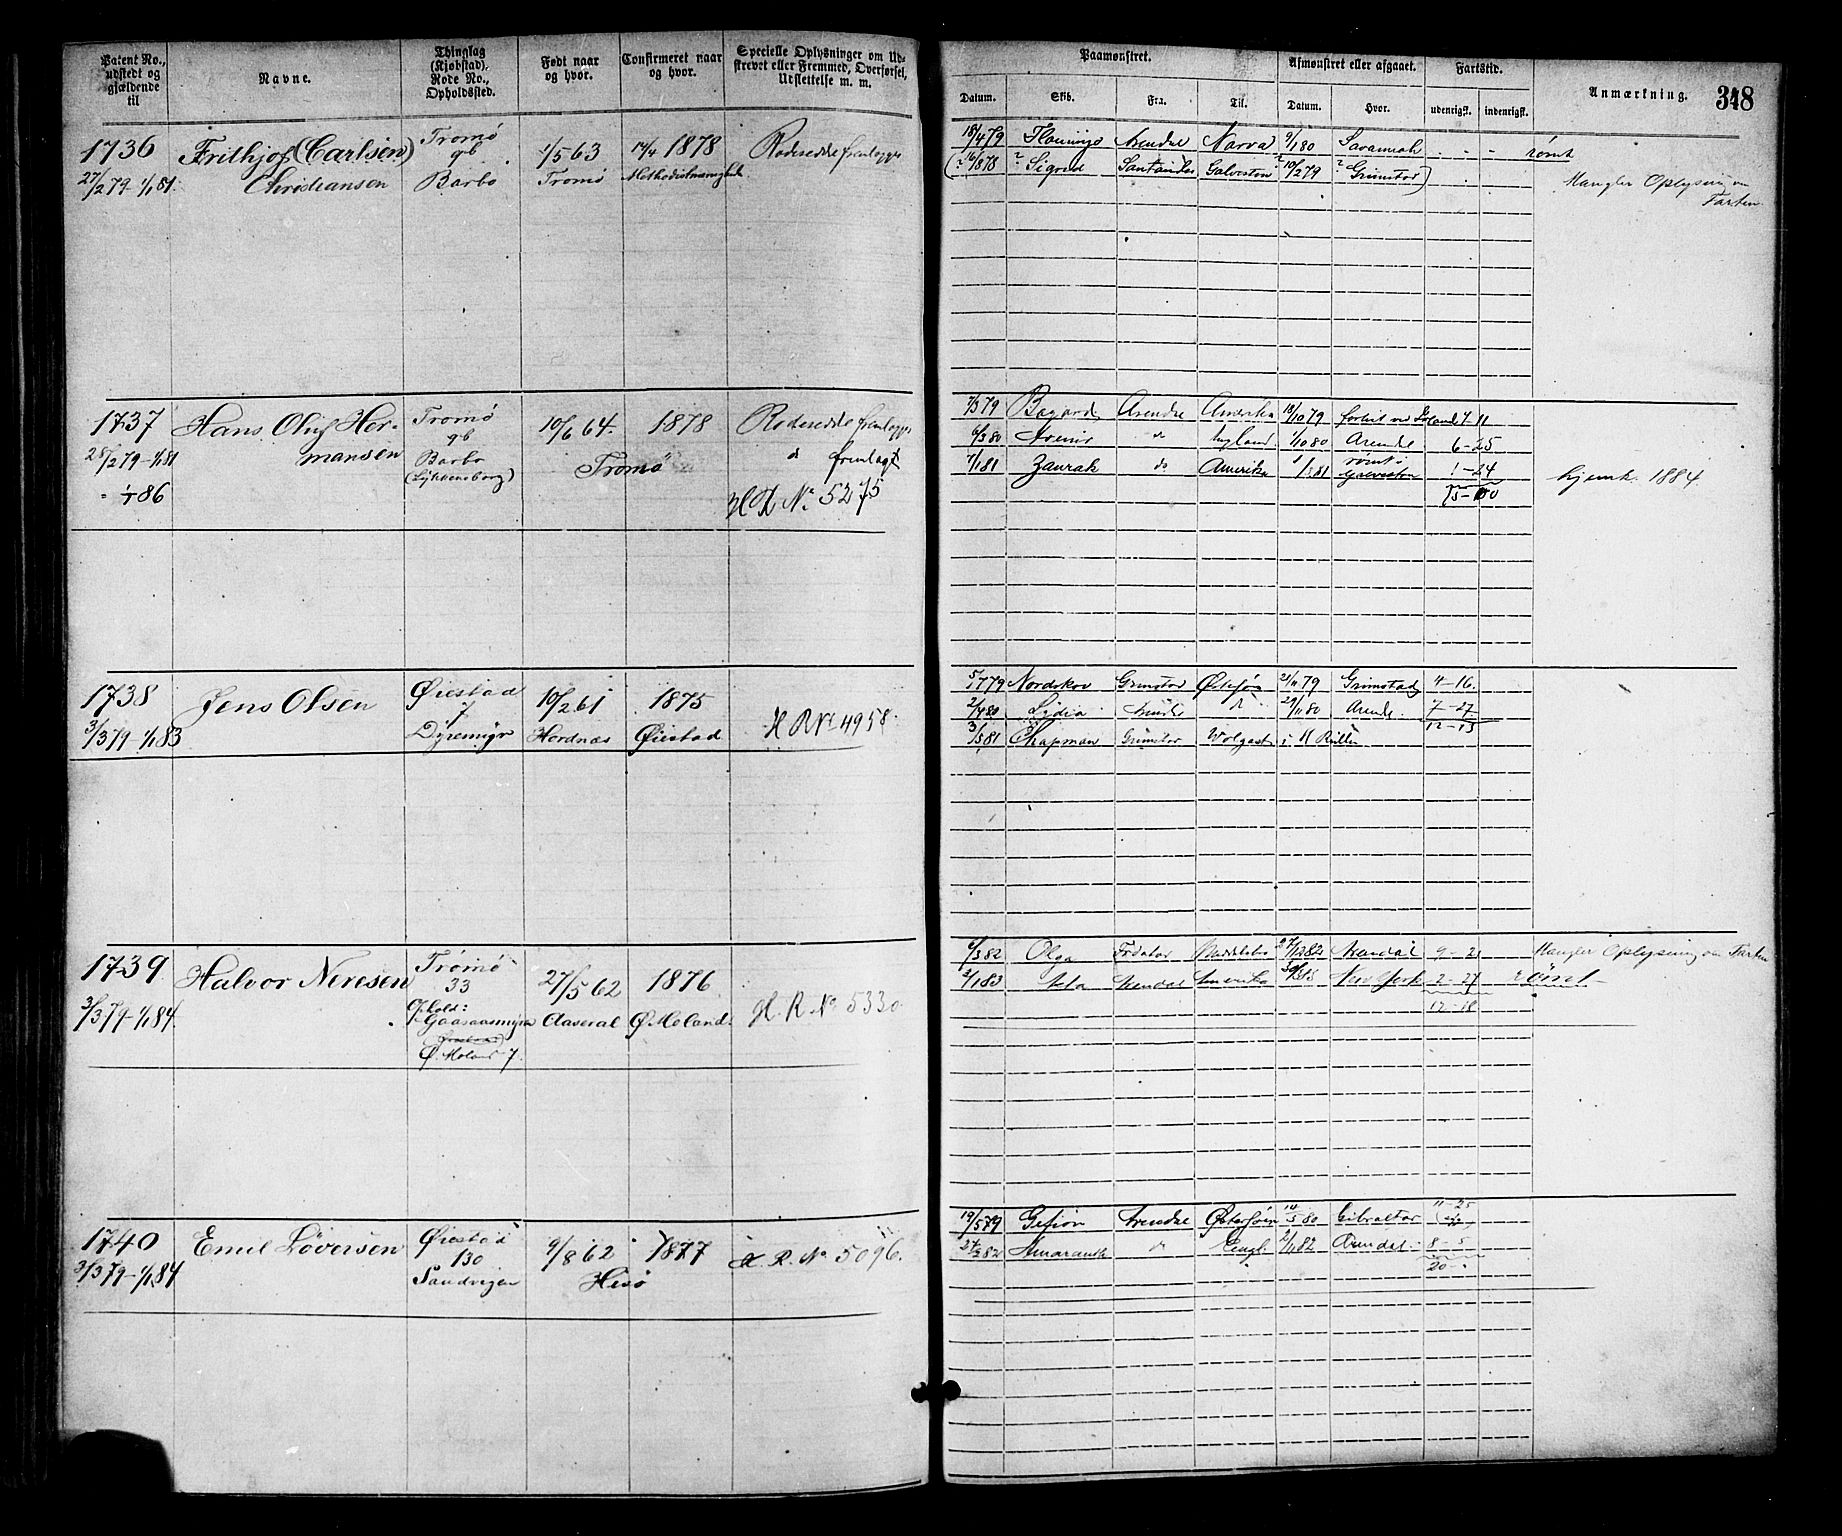 Patent No., udstedt og gjældende til
Navne.
Thinglag (Kjøbstad). Rode No., Opholdssted.
Født naar og hvor.
Confirmeret naar og hvor.
Specielle Oplysninger om Udskrevet eller Fremmed, Overførsel, Udslettelse m. m.
Paamønstret.
Afmønstret eller afgaaet.
Fartstid.
Anmærkning.
348
Datum. Skib. Fra. Til. Datum. Hvor. udenrigsk. indenrigsk.
1736 Frithjof (Carlsen) Tromø 1/5 63 14/4 1878 Rodesedde fremlagges
27/2 79 - 1/1 81. Christiansen 96 Barbo Tromø
18/4 79 Arendal Narva 9/1 80 Savannah rømt
(? 16/8 78 ? Sigurd Santander Galveston ? 10/2 79 ? Grimstad)
Mangler Oplysning om Farten
1737 Hans Oluf Her- Tromø 10/6 64. 1878 Rodesedde fremlagges
28/2 79 - 1/1 81 mansen 96 Barbo Tromø d fremlagt
(Lykkensborg)
H R No 5275
1/3 79 Arendal Amerika 18/10 79 7-11
6/3 80 do England 1/10 80 Arendal 6-25
1/1 81 Zaurak do Amerika 1/3 81 rømt i Galveston 1-24
hjemk. 1884
1738 Jens Olsen Øiestad 10/2 61 1875
3/3 79 - 1/1 83 7 Dyremyr Hordnæs Øiestad H R No 4958.
5/7 79 Nordskov Grimstad Østersøen 21/11 79 Grimstad 4-16.
2/4 80 Lydia Arendal d 29/11 80 Arendal. 7-27
12-13
3/5 81 Chapman Grimstad Wolgast i H Rullen
1739 Halvor Neresen Tromø 27/5 62 1876
3/3 79 - 1/1 84. 33 Aaseral Ø Moland. H. R. No 5330
Ophold:
Ø. Moland 7.
6/3 82 Olga 27/12 82 Arendal 9-2 Mangler Oplysning om Farten
2/1 83 Ada Arendal Amerika New York 2-27 Rømt
1740 Emil Løversen Øiestad 9/8 62 1877 H. R. No 5096.
3/3 79 - 1/1 84 130 Hisø
Sandvigen
19/5 79 Gefion Arendal Østersøen 14/5 80 Gibraltar 11-25
27/3 82 Amaranth d Engl. 2/11 82 Arendal. 8-5
20-